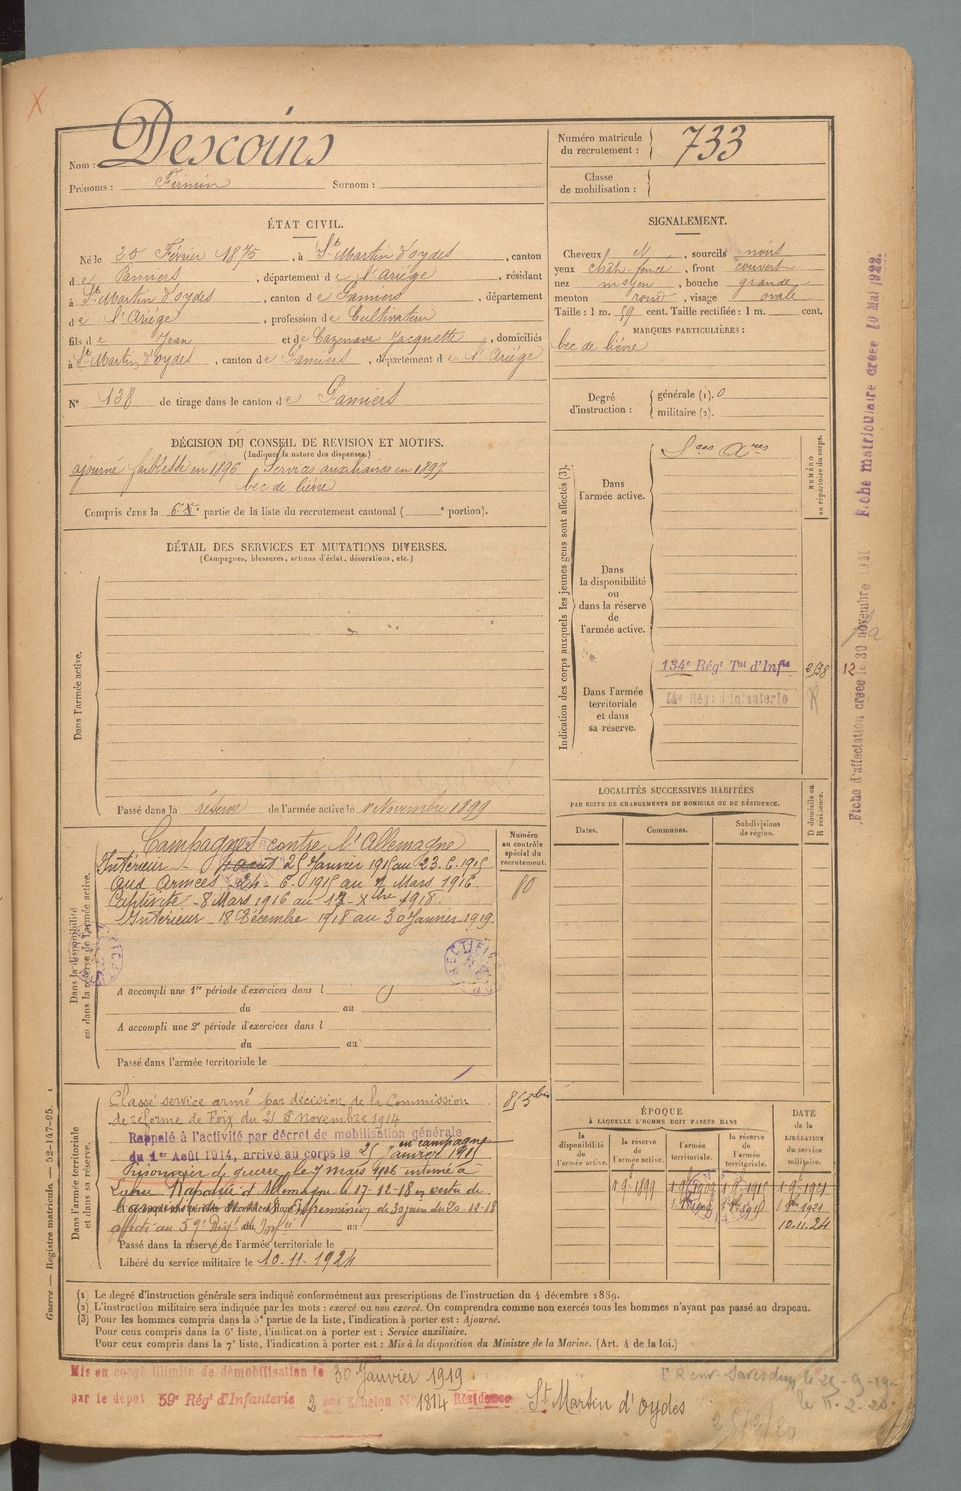 Nom : Descoins
Prénoms : Firmin Surnom :
Numéro matricule du recrutement : 733
Classe de mobilisation :
ÉTAT CIVIL.
Né le 20 Février 1875, à St Martin d'oydes, canton
de Pamiers, département de l'Ariège, résidant
à St Martin d'oydes, canton de Pamiers, département
de l'Ariège, profession de Cultivateur
fils de Jean et de Cazenave Jacquette, domiciliés
à St Martin d'oydes, canton de Pamiers, département de l'Ariège
N° 138 de tirage dans le canton de Pamiers
SIGNALEMENT.
Cheveux N, sourcils noirs
yeux chât-foncé, front couvert
nez moyen, bouche grande
menton rond, visage ovale
Taille : 1 m. 59 cent. Taille rectifiée : 1 m. cent.
MARQUES PARTICULIÈRES :
bec de lièvre
Degré d'instruction : générale (1). 0
militaire (2).
DÉCISION DU CONSEIL DE REVISION ET MOTIFS.
(Indiquer la nature des dispenses.)
ajourné faiblesse en 1896 Services auxiliaires en 1897
bec de lièvre
Compris dans la 6e partie de la liste du recrutement cantonal ( e portion).
DÉTAIL DES SERVICES ET MUTATIONS DIVERSES.
(Campagnes, blessures, actions d'éclat, décorations, etc.)
Dans l'armée active.
Passé dans la réserve de l'armée active le 1 Novembre 1899
Indication des corps auxquels les jeunes gens sont affectés (3).
NUMÉRO au répertoire du corps.
Dans l'armée active.
Sces Axres
Dans la disponibilité ou dans la réserve de l'armée active.
Dans l'armée territoriale et dans sa réserve.
134e Régt Tal d'Infie
14e Régt d'infanterie
12
Fiche d'affectation créée le 30 novembre
Fiche matriculaire créée 10 Mai 1922.
LOCALITÉS SUCCESSIVES HABITÉES
PAR SUITE DE CHANGEMENTS DE DOMICILE OU DE RÉSIDENCE.
Dates. Communes. Subdivisions de région. D domicile ou R résidence.
Dans la disponibilité ou dans la réserve de l'armée active.
Numéro au contrôle spécial du recrutement.
80
Campagnes contre l'Allemagne
Intérieur - 25 Janvier 1915 au 23.6.1915
aux Armées 24. 6. 1915 au 7 Mars 1916
Captivité - 8 Mars 1916 au 17 Xbre 1918.
Intérieur 18 Décembre 1918 au 30 Janvier 1919.
A accompli une 1re période d'exercices dans l
du au
A accompli une 2e période d'exercices dans l
du au
Passé dans l'armée territoriale le
Dans l'armée territoriale et dans sa réserve.
Classé service armé par décision de la Commission
de réforme de Foix du 21 Novembre 1914
Rappelé à l'activité par décret de mobilisation générale
du 1er Août 1914, arrivé au corps le 25 Janvier 1915
en campagne
Prisonnier de guerre le 7 mars 1916 interné à
Rapatrié d'Allemagne le 17-12-18 en vertu de
affecté au 59e Régt d'Infie
Passé dans la réserve de l'armée territoriale le
Libéré du service militaire le 10-11-1924
815 bis
ÉPOQUE
À LAQUELLE L'HOMME DOIT PASSER DANS
la disponibilité de l'armée active. la réserve de l'armée active. l'armée territoriale. la réserve de l'armée territoriale. DATE DE LA LIBÉRATION du service militaire.
1 9bre 1899
10.11.24
(1) Le degré d'instruction générale sera indiqué conformément aux prescriptions de l'instruction du 4 décembre 1889.
(2) L'instruction militaire sera indiquée par les mots : exercé ou non exercé. On comprendra comme non exercés tous les hommes n'ayant pas passé au drapeau.
(3) Pour les hommes compris dans la 5e partie de la liste, l'indication à porter est : Ajourné.
Pour ceux compris dans la 6e liste, l'indication à porter est : Service auxiliaire.
Pour ceux compris dans la 7e liste, l'indication à porter est : Mis à la disposition du Ministre de la Marine. (Art. 4 de la loi.)
Guerre — Registre matricule. — 52-147-95.
Mis en congé illimité de démobilisation le 30 Janvier 1919
par le dépôt 59e Régt d'Infanterie 2 ème Echelon N° 1814 Résidence St Martin d'oydes